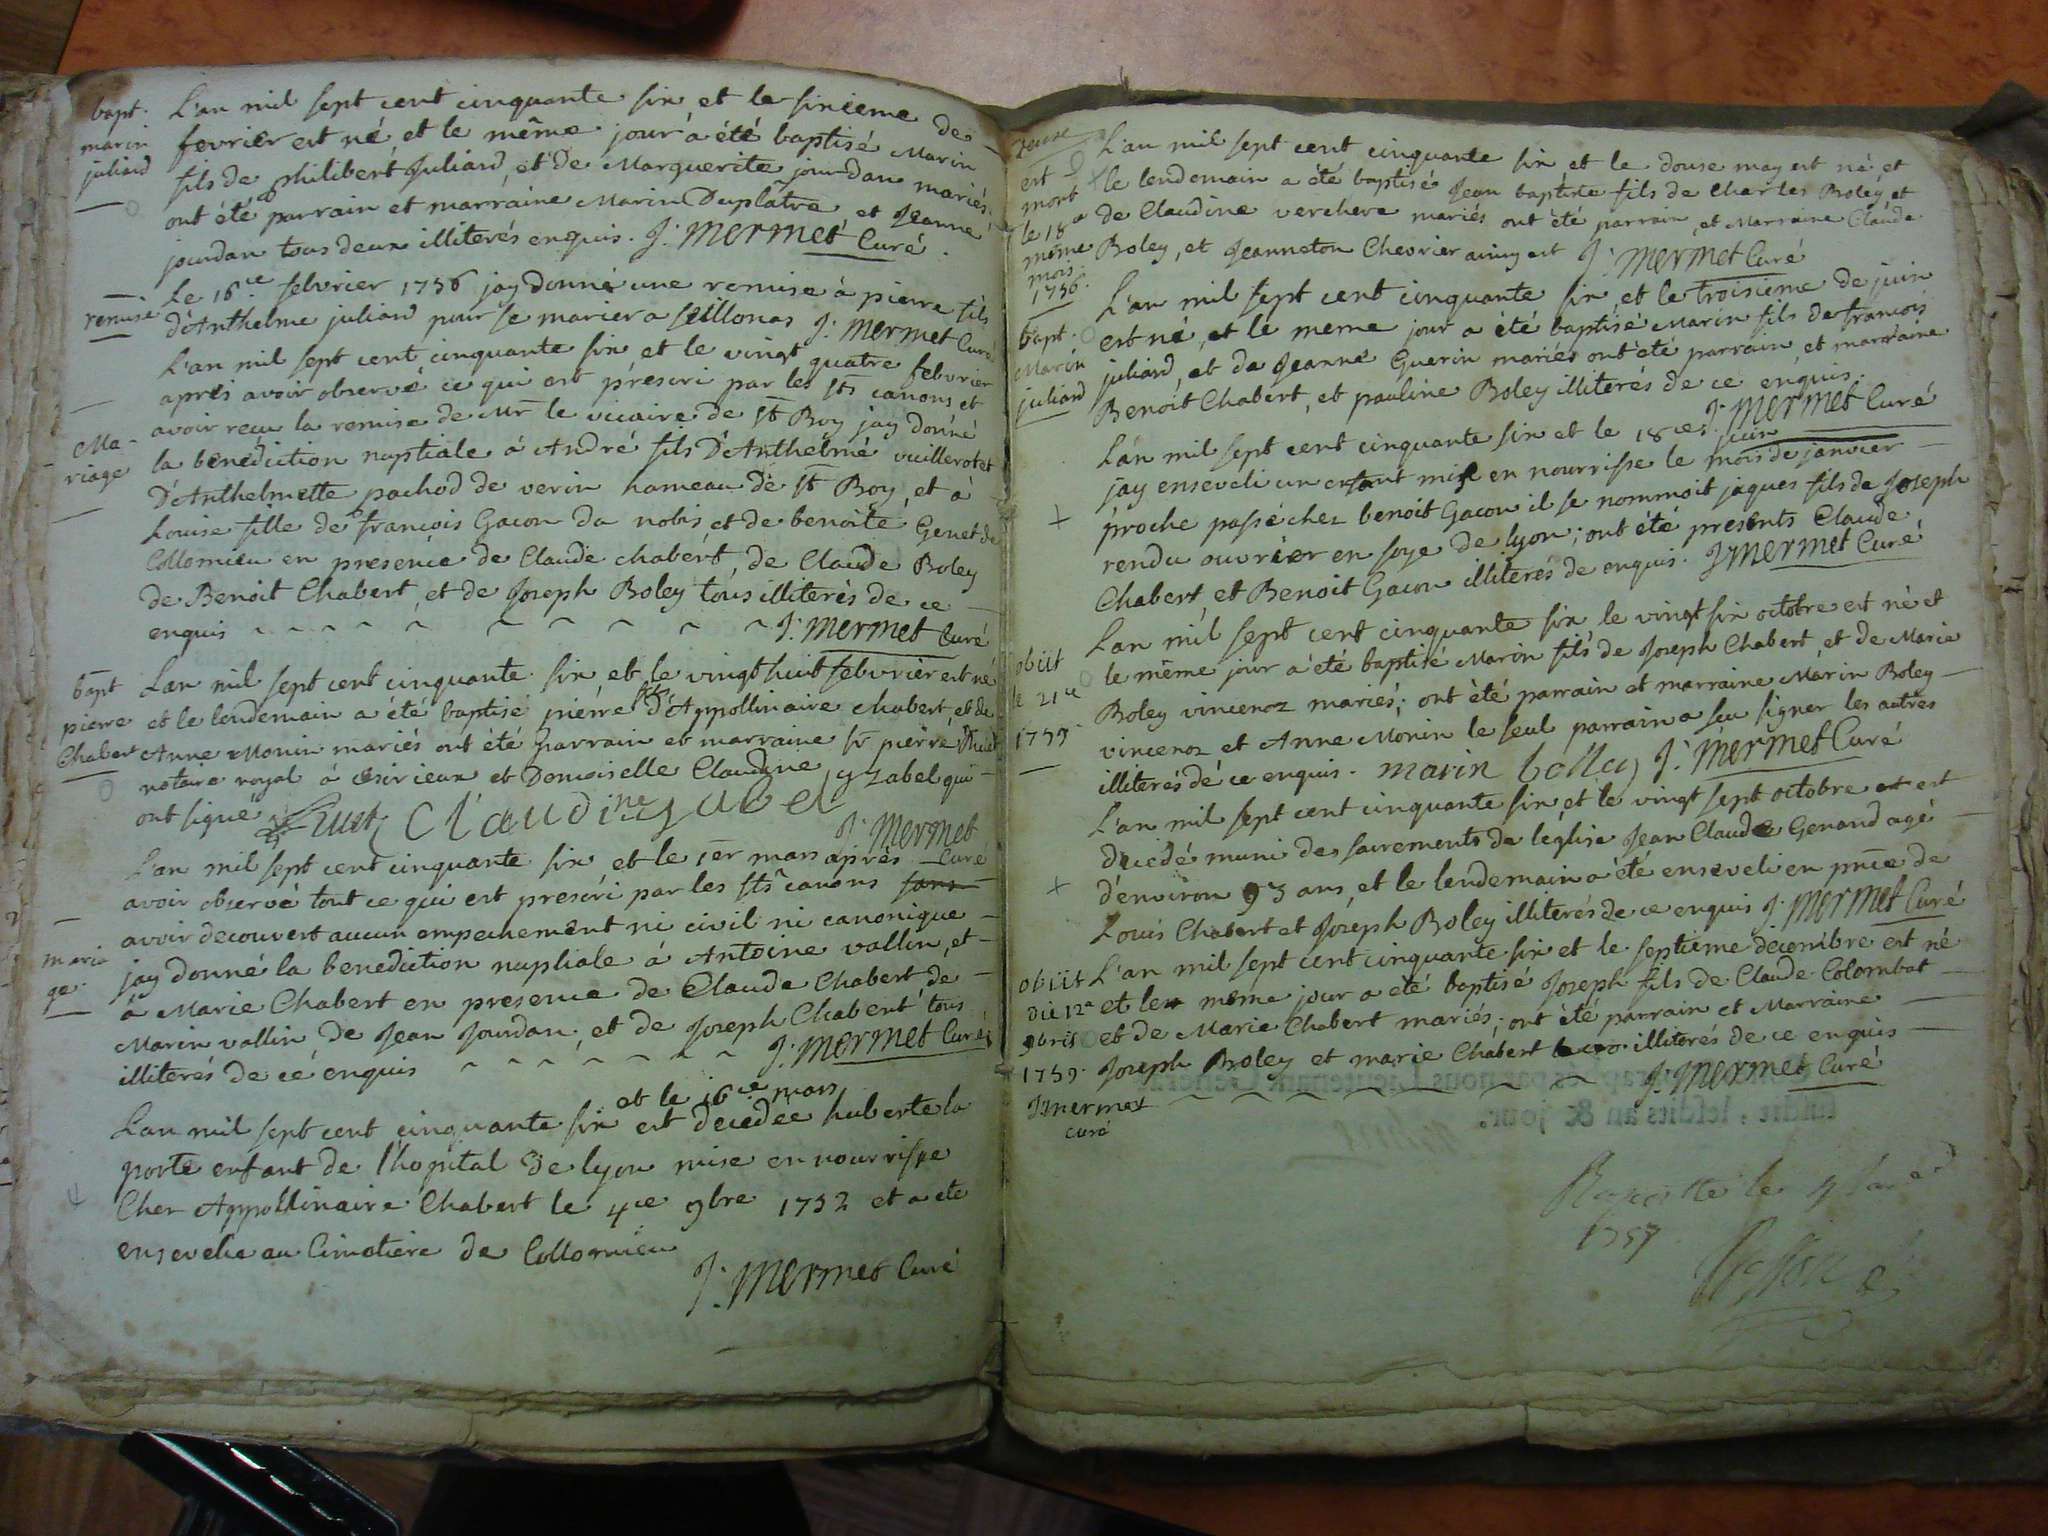 bapt.
marin
juliard
L'an mil sept cent cinquante six et le sixieme de
fevrier est né et le même jour a été baptisé Marin
fils de philibert Juliard, et de Marguerite jourdan mariés
ont été parrain et marraine Marin Duplâtre, et Jeanne
jourdan tous deux illiterés enquis. J. Mermet Curé.
remise
Le 16ce febvrier 1756 jay donné une remise à pierre fils
d'Anthelme juliard pour se marier a seillonas J. Mermet Curé
Ma-
riage
L'an mil sept cent cinquante six et le vingt quatre febvrier
apres avoir observé ce qui est prescri par les sts canons et
avoir recu la remise de Mr le vicaire de st Boy jay donné
la benediction nuptiale á André fils D'Anthelme vuillerot et
D'Anthelmette pachod de verin hameau de st Boy, et à
Louise fille de francois Gacon da nobis et de benoite Genet de
Collomieu en presence de Claude chabert, de Claude Boley
de Benoit Chabert, et de Joseph Boley tous illiterés de ce
enquis J. Mermet Curé
bapt
pierre
Chabert
Lan mil sept cent cinquante six et le vingt huit febvrier est né
et le lendemain a été baptisé pierre fils d'Appollinaire chabert, et de
Anne Monin mariés ont été parrain et marraine sr pierre
notaire royal á et Demoiselle Claudyne yzabel qui
ont signé Claudine ysabel
J. Mermet
Curé
maria
ge.
L'an mil sept cent cinquante six et le 1er mars aprés
avoir observé tout ce qui est prescri par les sts canons sans
avoir decouvert aucun empechement ni civil ni canonique
jay donné la benediction nuptiale á Antoine vallin, et
á Marie Chabert en presence de Claude Chabert de
Marin vallin de Jean Jourdan, et de Joseph Chabert tous
illiterés de ce enquis J. Mermet Curé
et le 16ce mars
Lan mil sept cent cinquante six est decedée huberte la
porte enfant de l'hopital de lyon mise en nourrisse
Cher Appollinaire Chabert le 4ce 9bre 1752 et a été
ensevelie au Cimetiere de Collomieu
J. Mermet Curé
est
mort
le 18e
même
mois
1756.
L'an mil sept cent cinquante six et le douse may est né et
le lendemain a été baptisé Jean baptiste fils de Charles Boley et
de Claudine verchere mariés ont été parrain, et Marraine Claude
Boley, et Jeanneton Chevrier ainsy est J. Mermet Curé
bapt.
Marin
juliard
L'an mil sept cent cinquante six et le troisieme de juin
est né, et le meme jour a été baptisé Marin fils de francois
juliard, et da Jeanne Guerin mariés ont été parrain, et marraine
Benoit Chabert, et pauline Boley illiterés de ce enquis.
J. Mermet Curé
Lán mil sept cent cinquante six et le 18ce juin
jay enseveli un enfant mis en nourrisse le mois de janvier
proche passé chez benoit Gacon il se nommoit jaques fils de Joseph
rendu ouvrier en soye de lyon; ont été presents Claude
Chabert, et Benoit Gacon illiterés de enquis. J. Mermet Curé
obiit
le 21ce
1759.
Lan mil sept cent cinquante six le vingt six octobre est né et
le même jour a été baptisé Marin fils de Joseph Chabert, et de Marie
Boley vincenoz mariés; ont été parrain et marraine Marin Boley
vincenoz et Anne Monin le seul parrain a scu signer les autres
illiterés de ce enquis. marin bolley J. Mermet Curé
L'an mil sept cent cinquante six et le vingt sept octobre est
decedé muni des sacrements de leglise Jean Claude Genand agé
d'environ 93 ans, et le lendemain a été enseveli en pnce de
Louis Chabert et Joseph Boley illiterés de ce enquis J. Mermet Curé
obiit
die 12a
9bris
1759.
J. mermet
curé
L'an mil sept cent cinquante six et le septieme decembre est né
et le même jour a été baptisé Joseph fils de Claude Colombat
et de Marie Chabert mariés; ont été parrain et Marraine
Joseph Boley et marie Chabert illiterés de ce enquis
J. Mermet Curé
1757